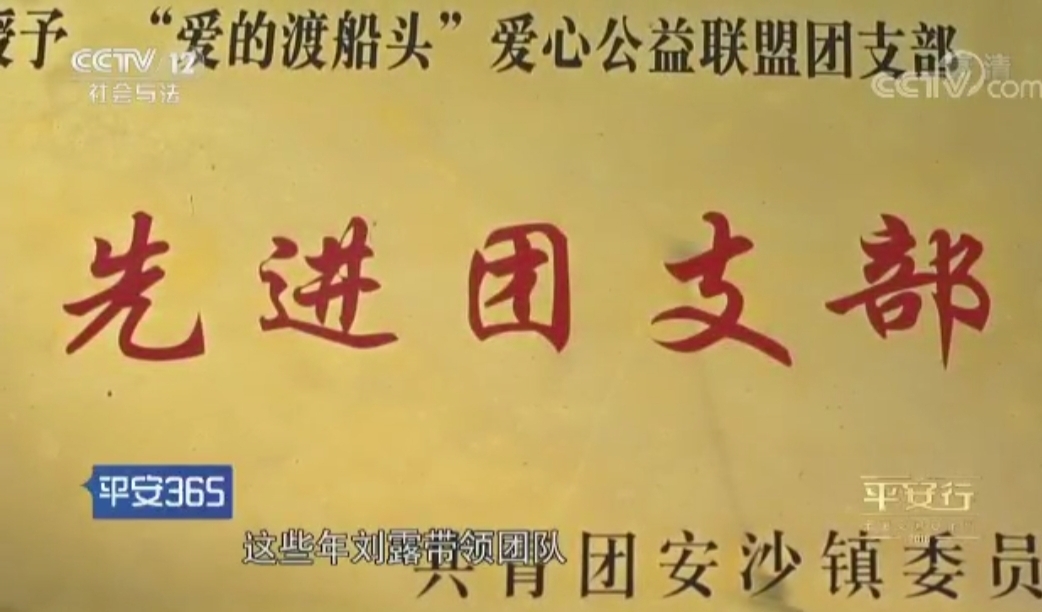 授予 “爱的渡船头”爱心公益联盟团支部
CCTV 12
社会与法
高清
CCTV.com
先进团支部
平安365
平安行
2018
这些年刘露带领团队
共青团安沙镇委员